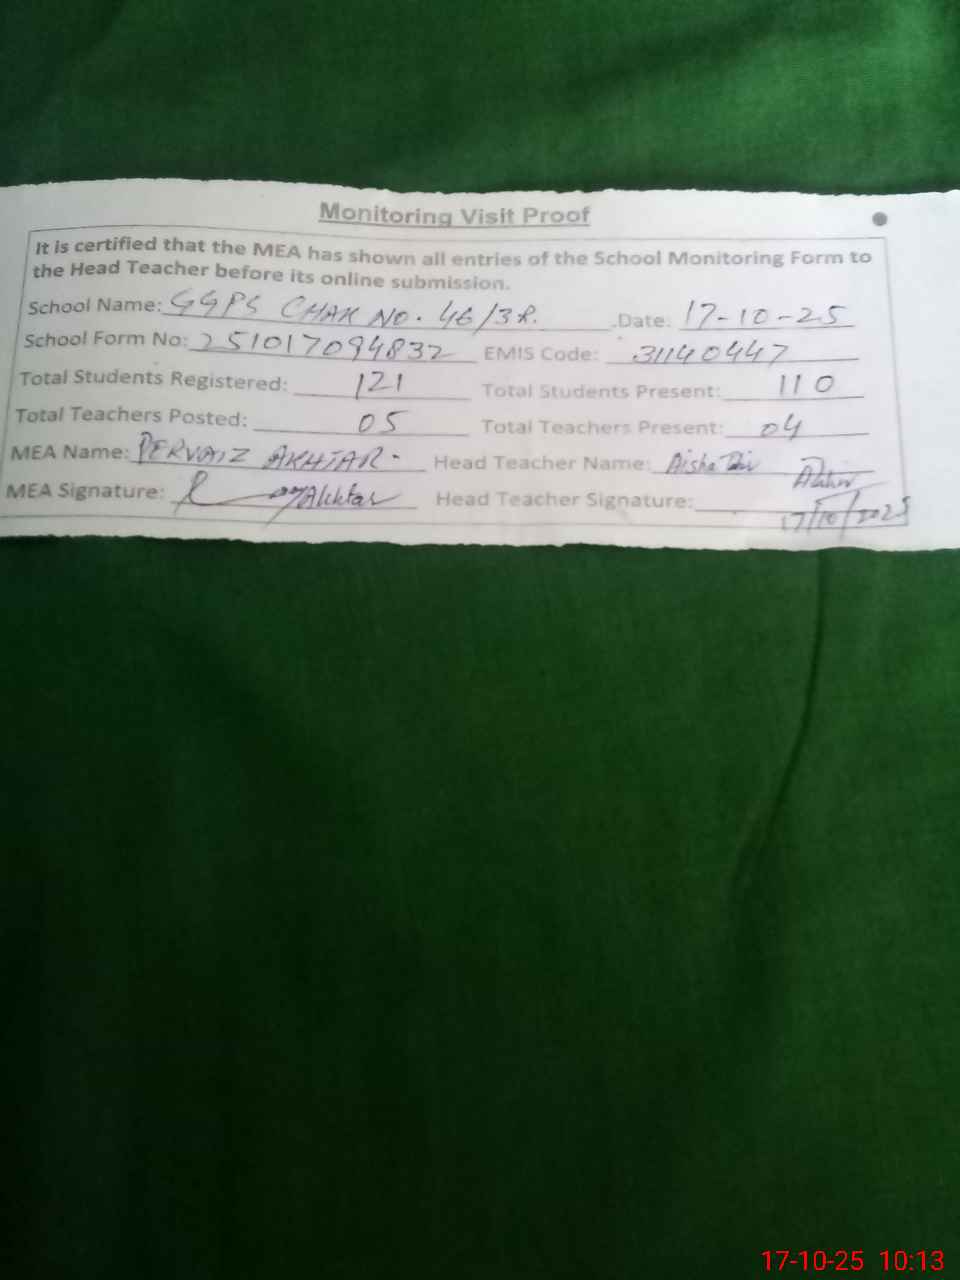 Monitoring Visit Proof
It is certified that the MEA has shown all entries of the School Monitoring Form to
the Head Teacher before its online submission.
School Name: GGPS CHAK NO. 46/3R. Date: 17-10-25
School Form No: 251017094832 EMIS Code: 31140447
Total Students Registered: 121 Total Students Present: 110
Total Teachers Posted: 05 Total Teachers Present: 04
MEA Name: PERVAIZ AKHTAR- Head Teacher Name: Aisha
MEA Signature: Akhtar Head Teacher Signature:
17/10/2025
17-10-25 10:13